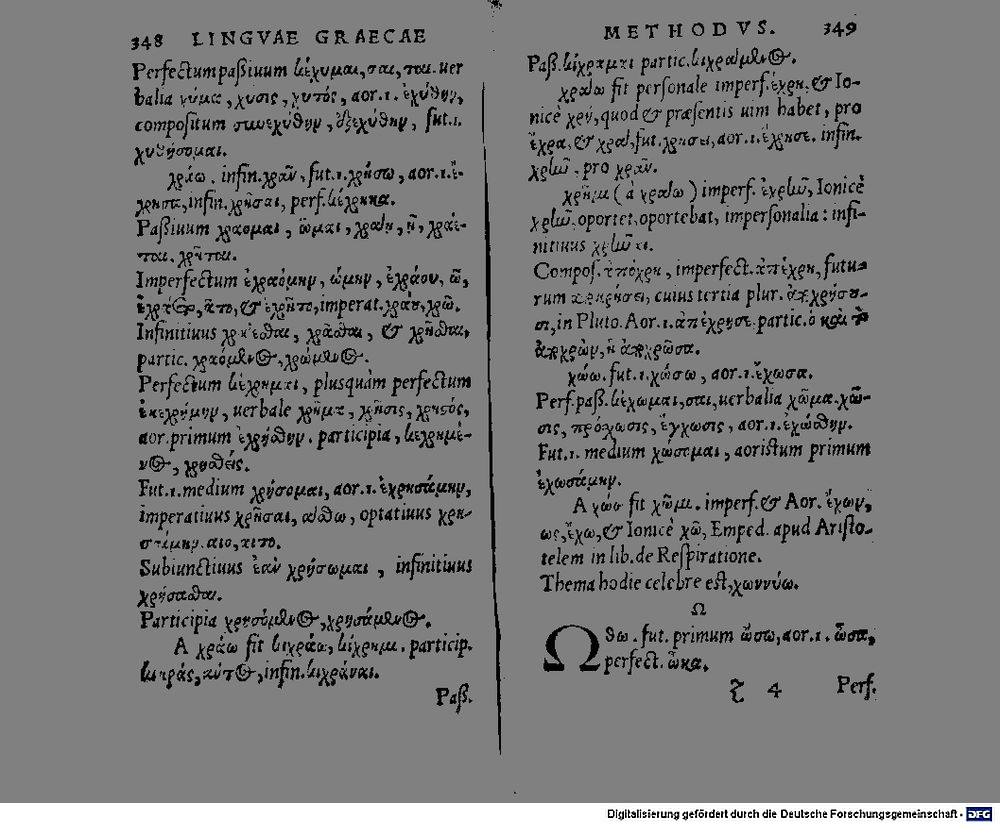 348 LINGVAE GRAECAE
Perfectum paßiuum κέχυμαι, σαι, ται. uer
balia χύμα, χύσις, χυτός, aor.1. ἐχύθην,
compositum συνεχύθην, ἐξεχύθην, fut.1.
χυθήσομαι.
χράω, infin. χρᾶν, fut.1. χρήσω, aor.1. ἔ-
χρησα, infin. χρῆσαι, perf. κέχρηκα.
Paßiuum χράομαι, ῶμαι, χράῃ, ῇ, χράε-
ται, χρῆται.
Imperfectum ἐχραόμην, ώμην, ἐχράου, ῶ,
ἐχράετο, ᾶτο, & ἐχρῆτο, imperat. χράου, χρῶ.
Infinitiuus χράεσθαι, χρᾶσθαι, & χρῆσθαι,
partic. χραόμενος, χρώμενος.
Perfectum κέχρημαι, plusquàm perfectum
ἐκεχρήμην, uerbale χρῆμα, χρῆσις, χρηστός,
aor. primum ἐχρήσθην. participia, κεχρημέ-
νος, χρησθείς.
Fut.1. medium χρήσομαι, aor.1. ἐχρησάμην,
imperatiuus χρῆσαι, άσθω, optatiuus χρη-
σαίμην. αιο, αιτο.
Subiunctiuus ἐὰν χρήσωμαι, infinitiuus
χρήσασθαι.
Participia χρησόμενος, χρησάμενος.
A χράω fit κιχράω, κίχρημι. particip.
κιχράς, άντος, infin. κιχράναι.
Paß.
METHODVS. 349
Paß. κίχραμαι partic. κιχράμενος.
χράω fit personale imperf. ἔχρη, & Io-
nicè χρή, quod & præsentis uim habet, pro
ἔχρα, & χράει, fut. χρήσει, aor.1. ἔχρησε. infin.
χρεῶν, pro χρᾶν.
χρῆμι (à χράω) imperf. ἐχρῆν, Ionicè
χρῆν, oportet, oportebat, impersonalia: infi-
nitiuus χρῆναι.
Compos. ἀπόχρη, imperfect. ἀπέχρη, futu-
rum ἀποχρήσει, cuius tertia plur. ἀποχρήσου-
σι, in Pluto. Aor.1. ἀπέχρησε. partic. ὁ καὶ τὸ
ἀποχρῶν, ἡ ἀποχρῶσα.
χώω. fut.1. χώσω, aor.1. ἔχωσα.
Perf. paß. κέχωμαι, σαι, uerbalia χῶμα. χῶ-
σις, πρόχωσις, ἔγχωσις, aor.1. ἐχώσθην.
Fut.1. medium χώσομαι, aoristum primum
ἐχωσάμην.
A χώω fit χῶμι. imperf. & Aor. ἔχων,
ως, ἔχω, & Ionicè χῶ, Emped. apud Aristo-
telem in lib. de Respiratione.
Thema hodie celebre est, χωννύω.
Ω
Ωθω. fut. primum ὤσω, aor.1. ὦσα,
perfect. ὦκα.
4 Perf.
Digitalisierung gefördert durch die Deutsche Forschungsgemeinschaft - DFG